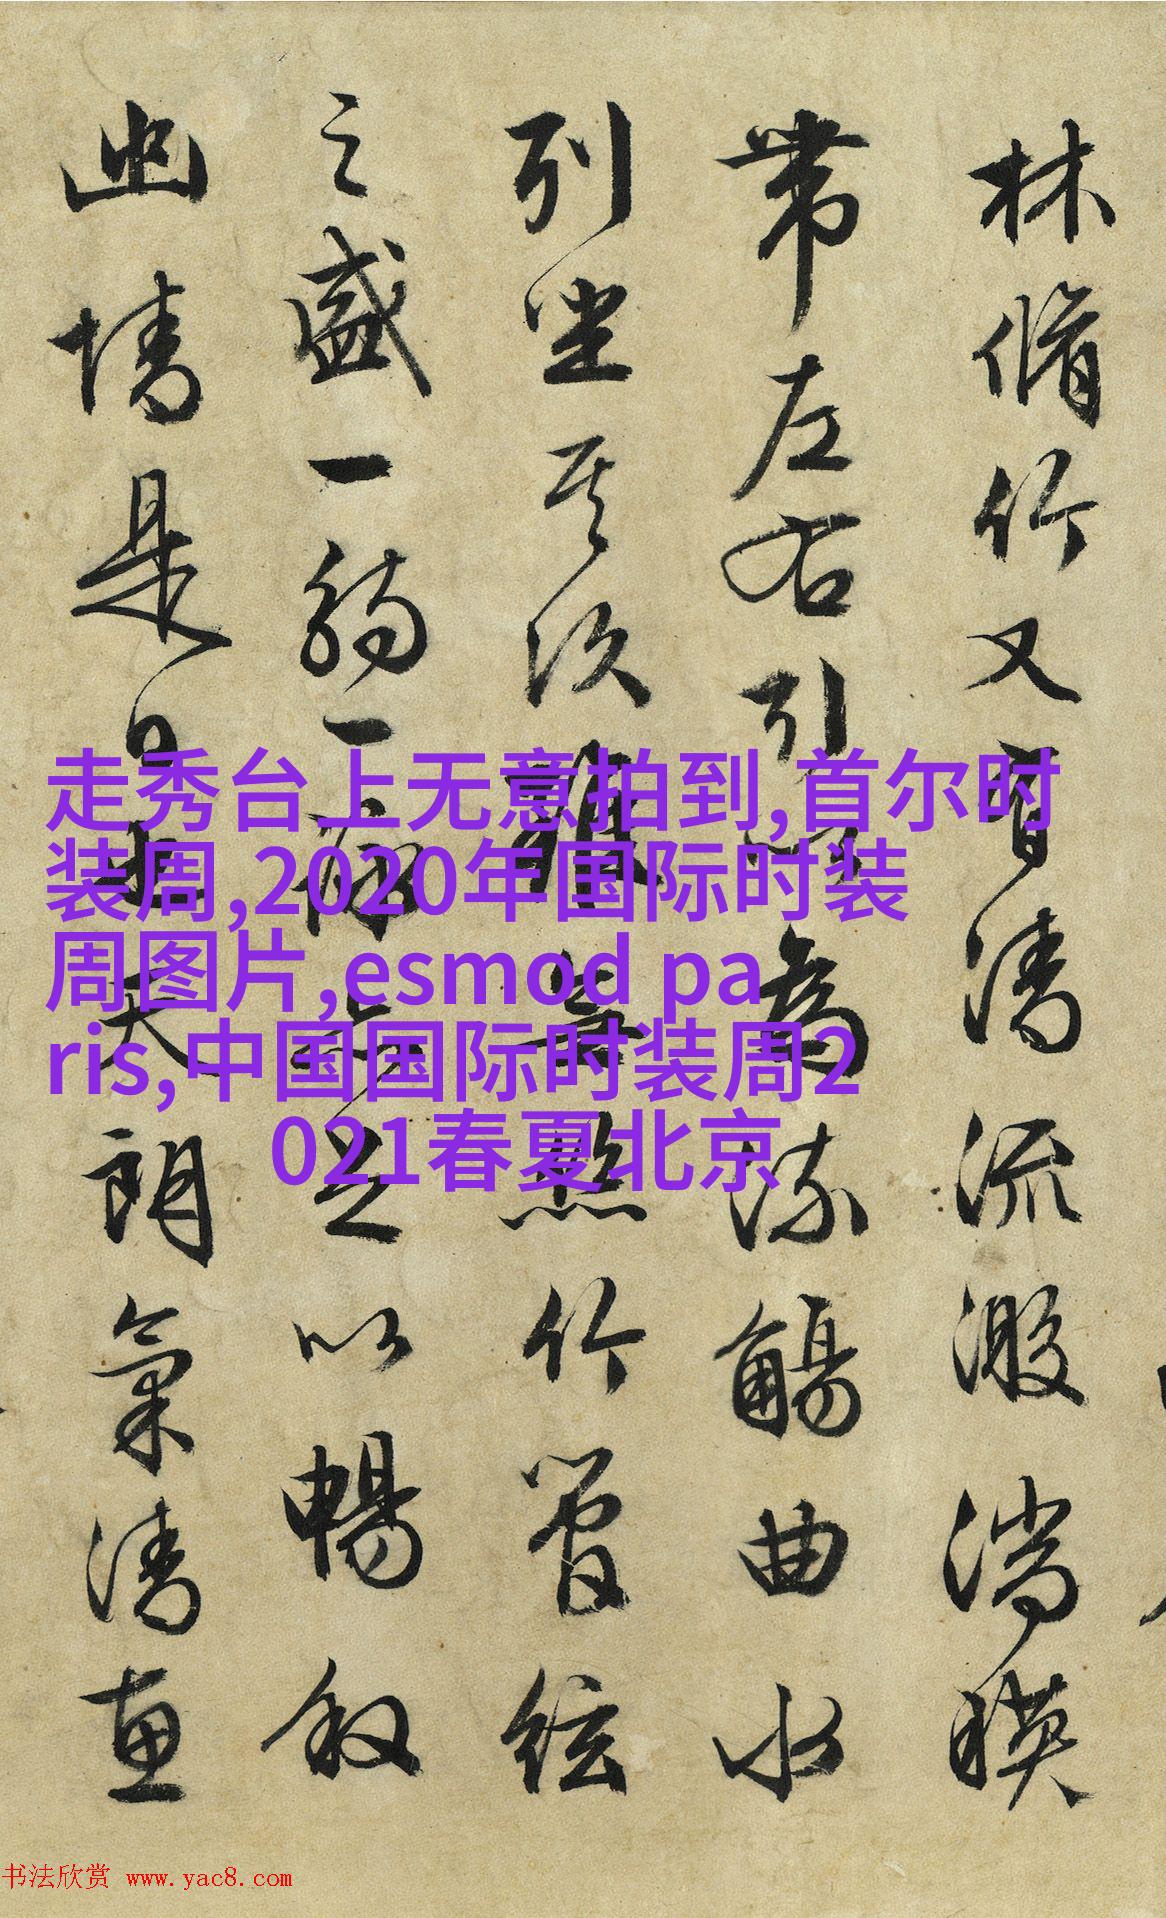 林脩竹又有清流激湍暎
帶左右引以為流觴曲水
列坐其次雖無絲竹管絃
之盛一觴一詠亦足以暢敘
幽情是日也天朗氣清惠
走秀台上无意拍到,首尔时
装周,2020年国际时装
周图片,esmod pa
ris,中国国际时装周2
021春夏北京
书法欣赏 www.yac8.com